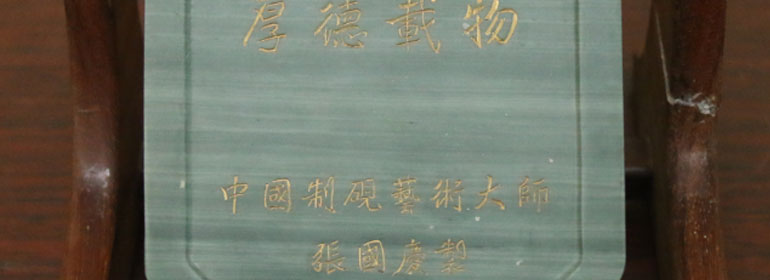 厚德載物
中國制硯藝術大師
張國慶製